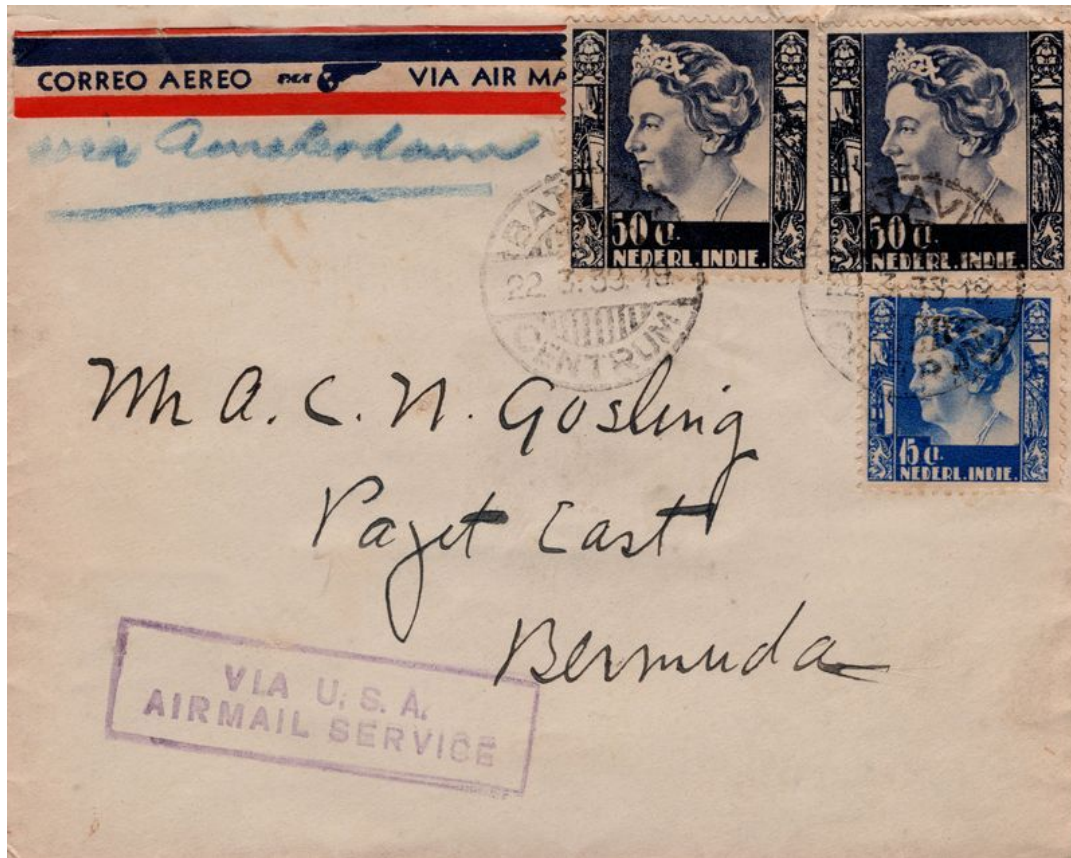 CORREO AEREO PAA VIA AIR MA
via Amsterdam
50 ct.
NEDERL. INDIE.
50 ct.
NEDERL. INDIE.
15 ct.
NEDERL. INDIE.
22.3.39.18
CENTRUM
Mr A. C. N. Gosling
Paget East
Bermuda
VIA U.S.A.
AIRMAIL SERVICE